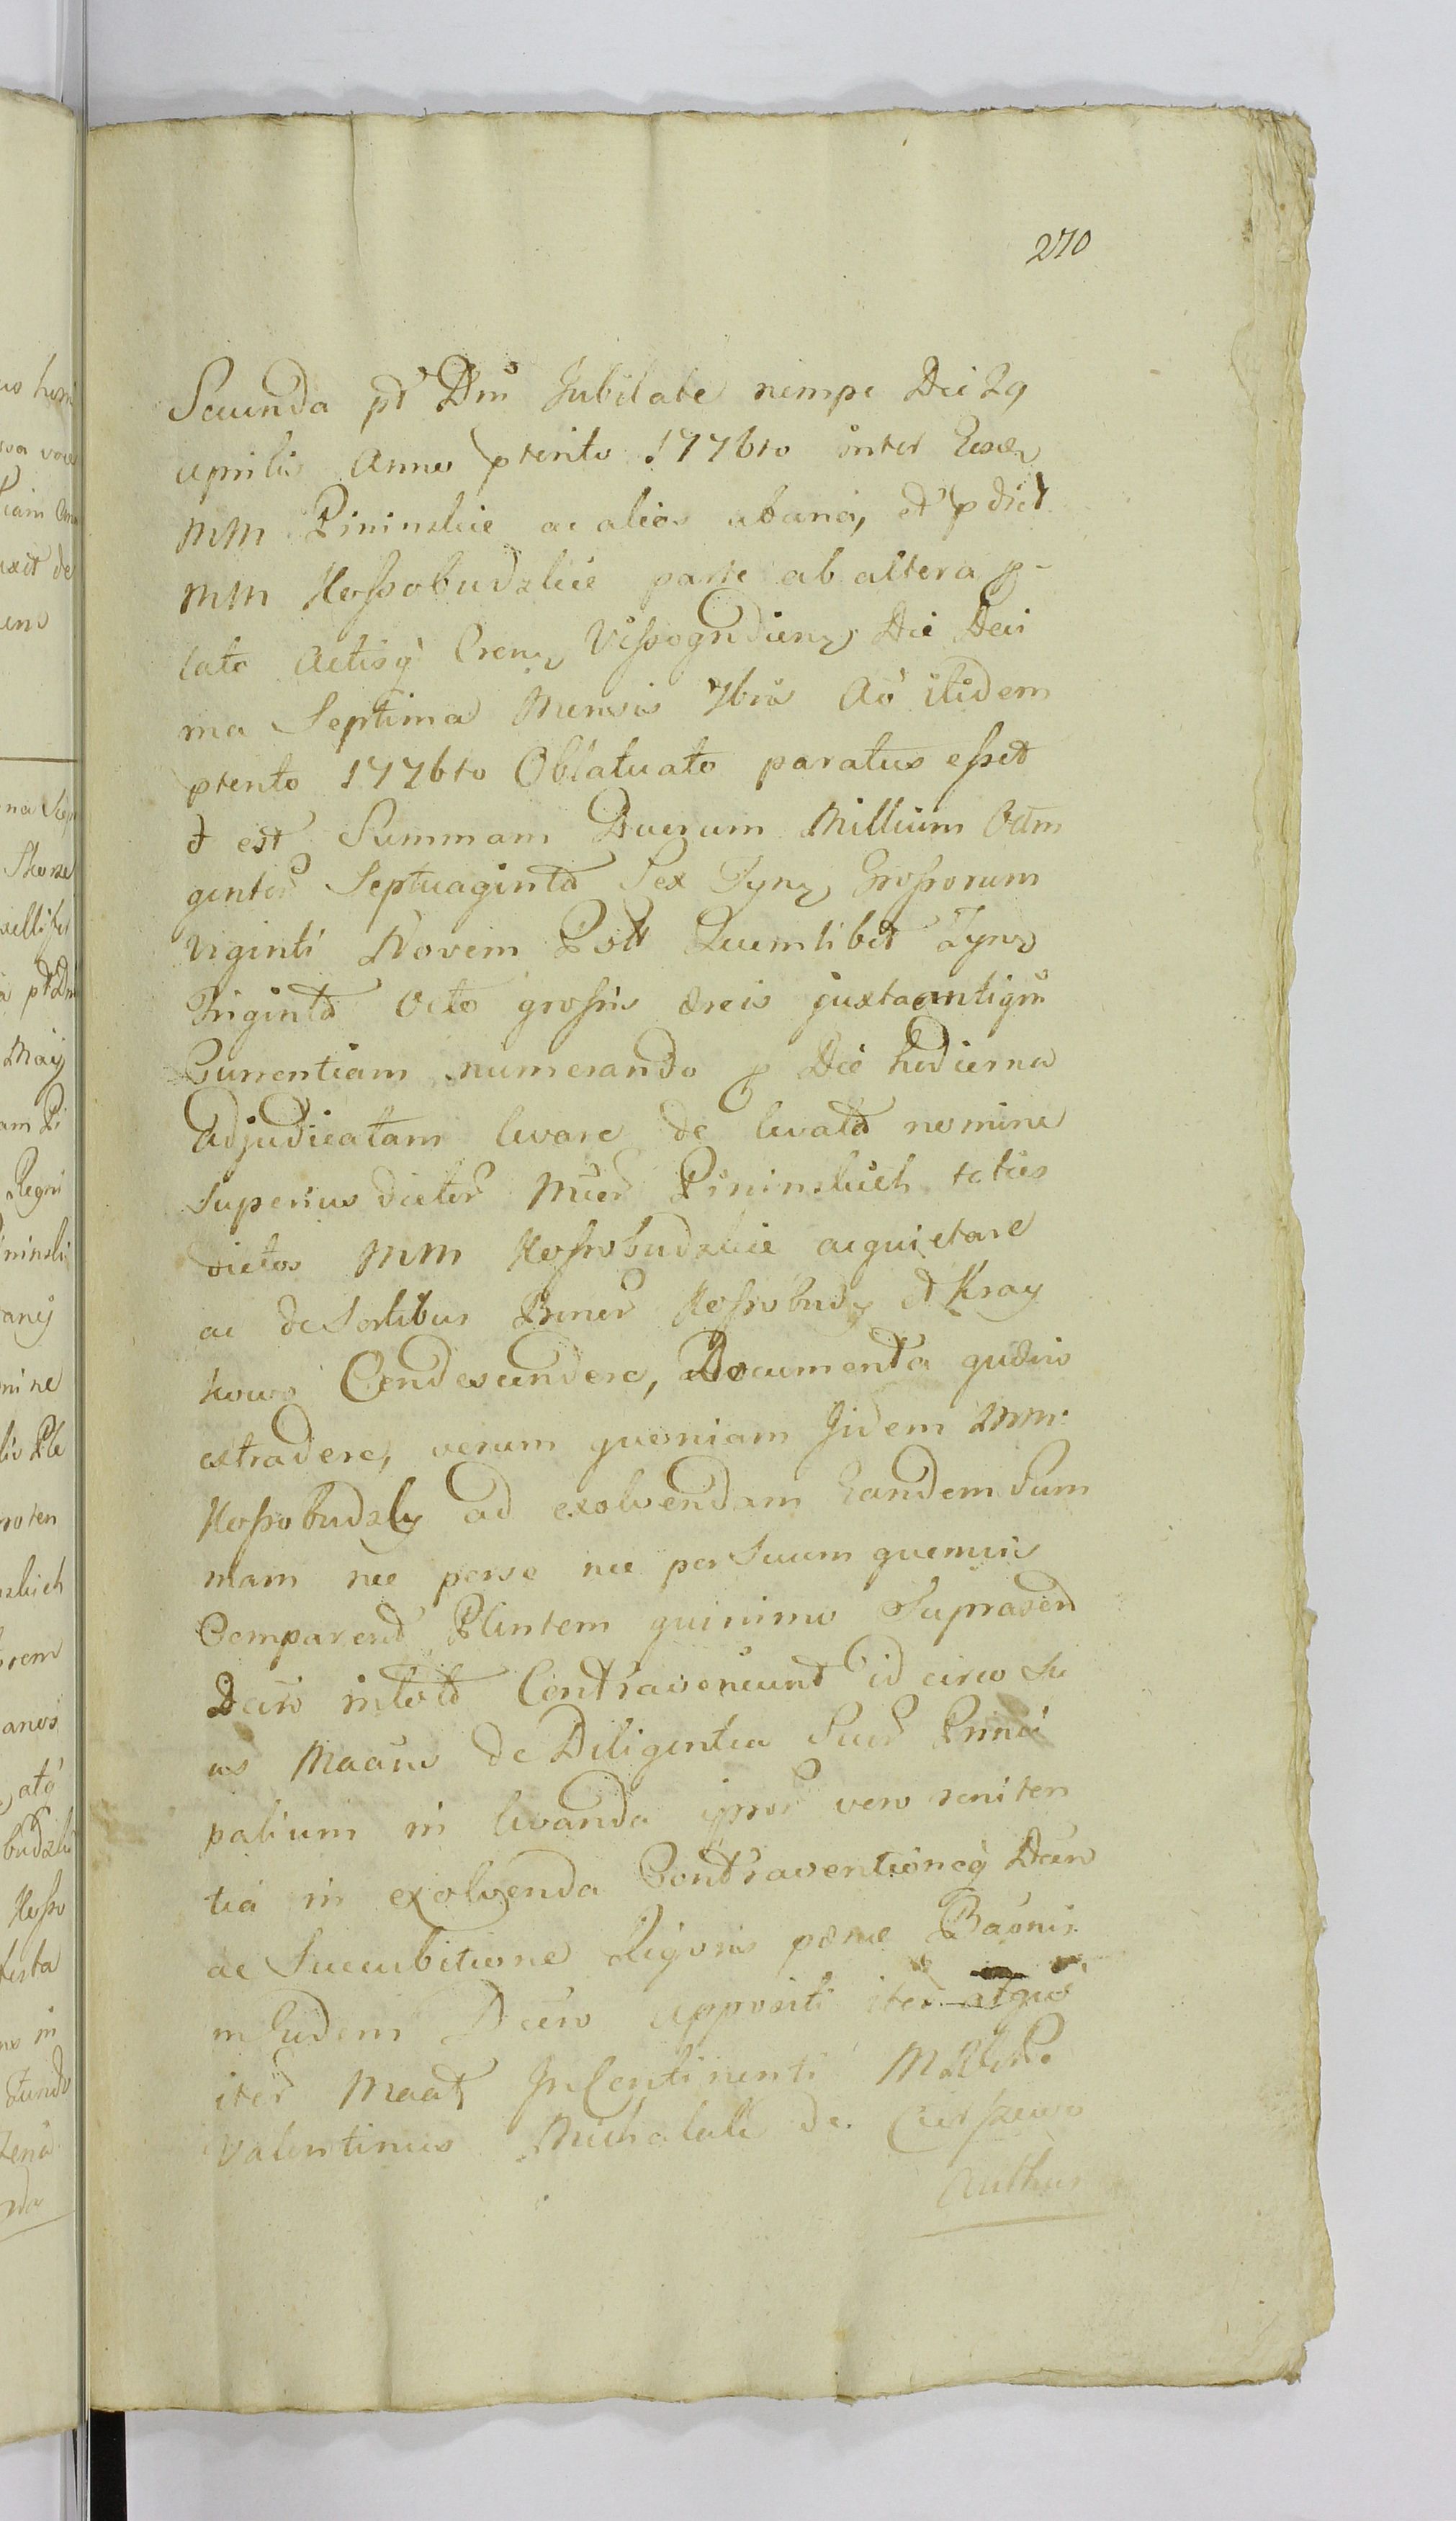 270
Secunda pt Dm Jubilate nempe Die 29
Aprilis Anno ptento 1776to inter
MM Pininskie ac alios abuna, et pdict
MM Kossobudzkie parte ab altera p-
lato Actisq Cren Vissogrdienz Die Deci
ma Septima Mensis 7bris Ao itidem
ptento 1776to Oblatuato paratus esset
id est Summam Duorum Millium Octin
gentor Septuaginta Sex Tynz Grossorum
viginti Novem Poll Quemlibet Tynz
Triginta Octo grossis æreis juxta antiqm
Currentiam numerando p Die hodierna
adjudicatam levare de levata nomine
superius dictor Mcor Pininskich toties
dictos MM Kossobudzkie acquietare
ac de Sortibus Bonor Kossobudy et Kray
kowo Condescendere, Documenta quævis
extradere, verum quoniam Jidem MM
Kossobudzky ad exolvendam Eandem Sum
mam nec perse nec per Suum quemvis
Comparend Plentem quinimo Suprascrip
Decro intoto Contravenerunt id circo Su
us Maans de Diligentia Suor Princi
palium in levanda ipsor vero reniten
tia in exolvenda Contraventioneq Decri
ac Succubitione Rigoris pænæ Bãonis
in Eodem Decro appositi iter atque
iter Maat In Continenti
Valentinus Michalski de
Author